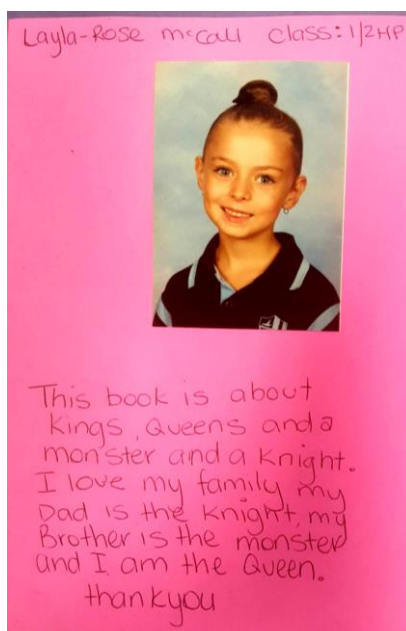 Layla-Rose McCall class: 1/2HP
This book is about
Kings, Queens and a
monster and a Knight.
I love my family my
Dad is the Knight, my
Brother is the monster
and I am the Queen.
thankyou